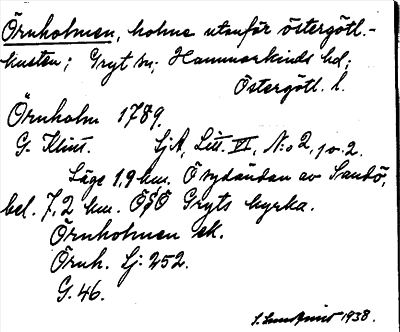 Örnholmen, holme utanför östergötl.-
kusten; Gryt sn; Hammarkinds hd;
Östergötl. l.
Örnholm 1789.
G. Klint. SjA, Litt. VI, N:o 2, p. 2.
Läge 1,9 km. Ö sydändan av Sandö,
bel. 7,2 km. OSO Gryts kyrka.
Örnholmen ek.
Örnh. Sj: 252.
G. 46.
1938.